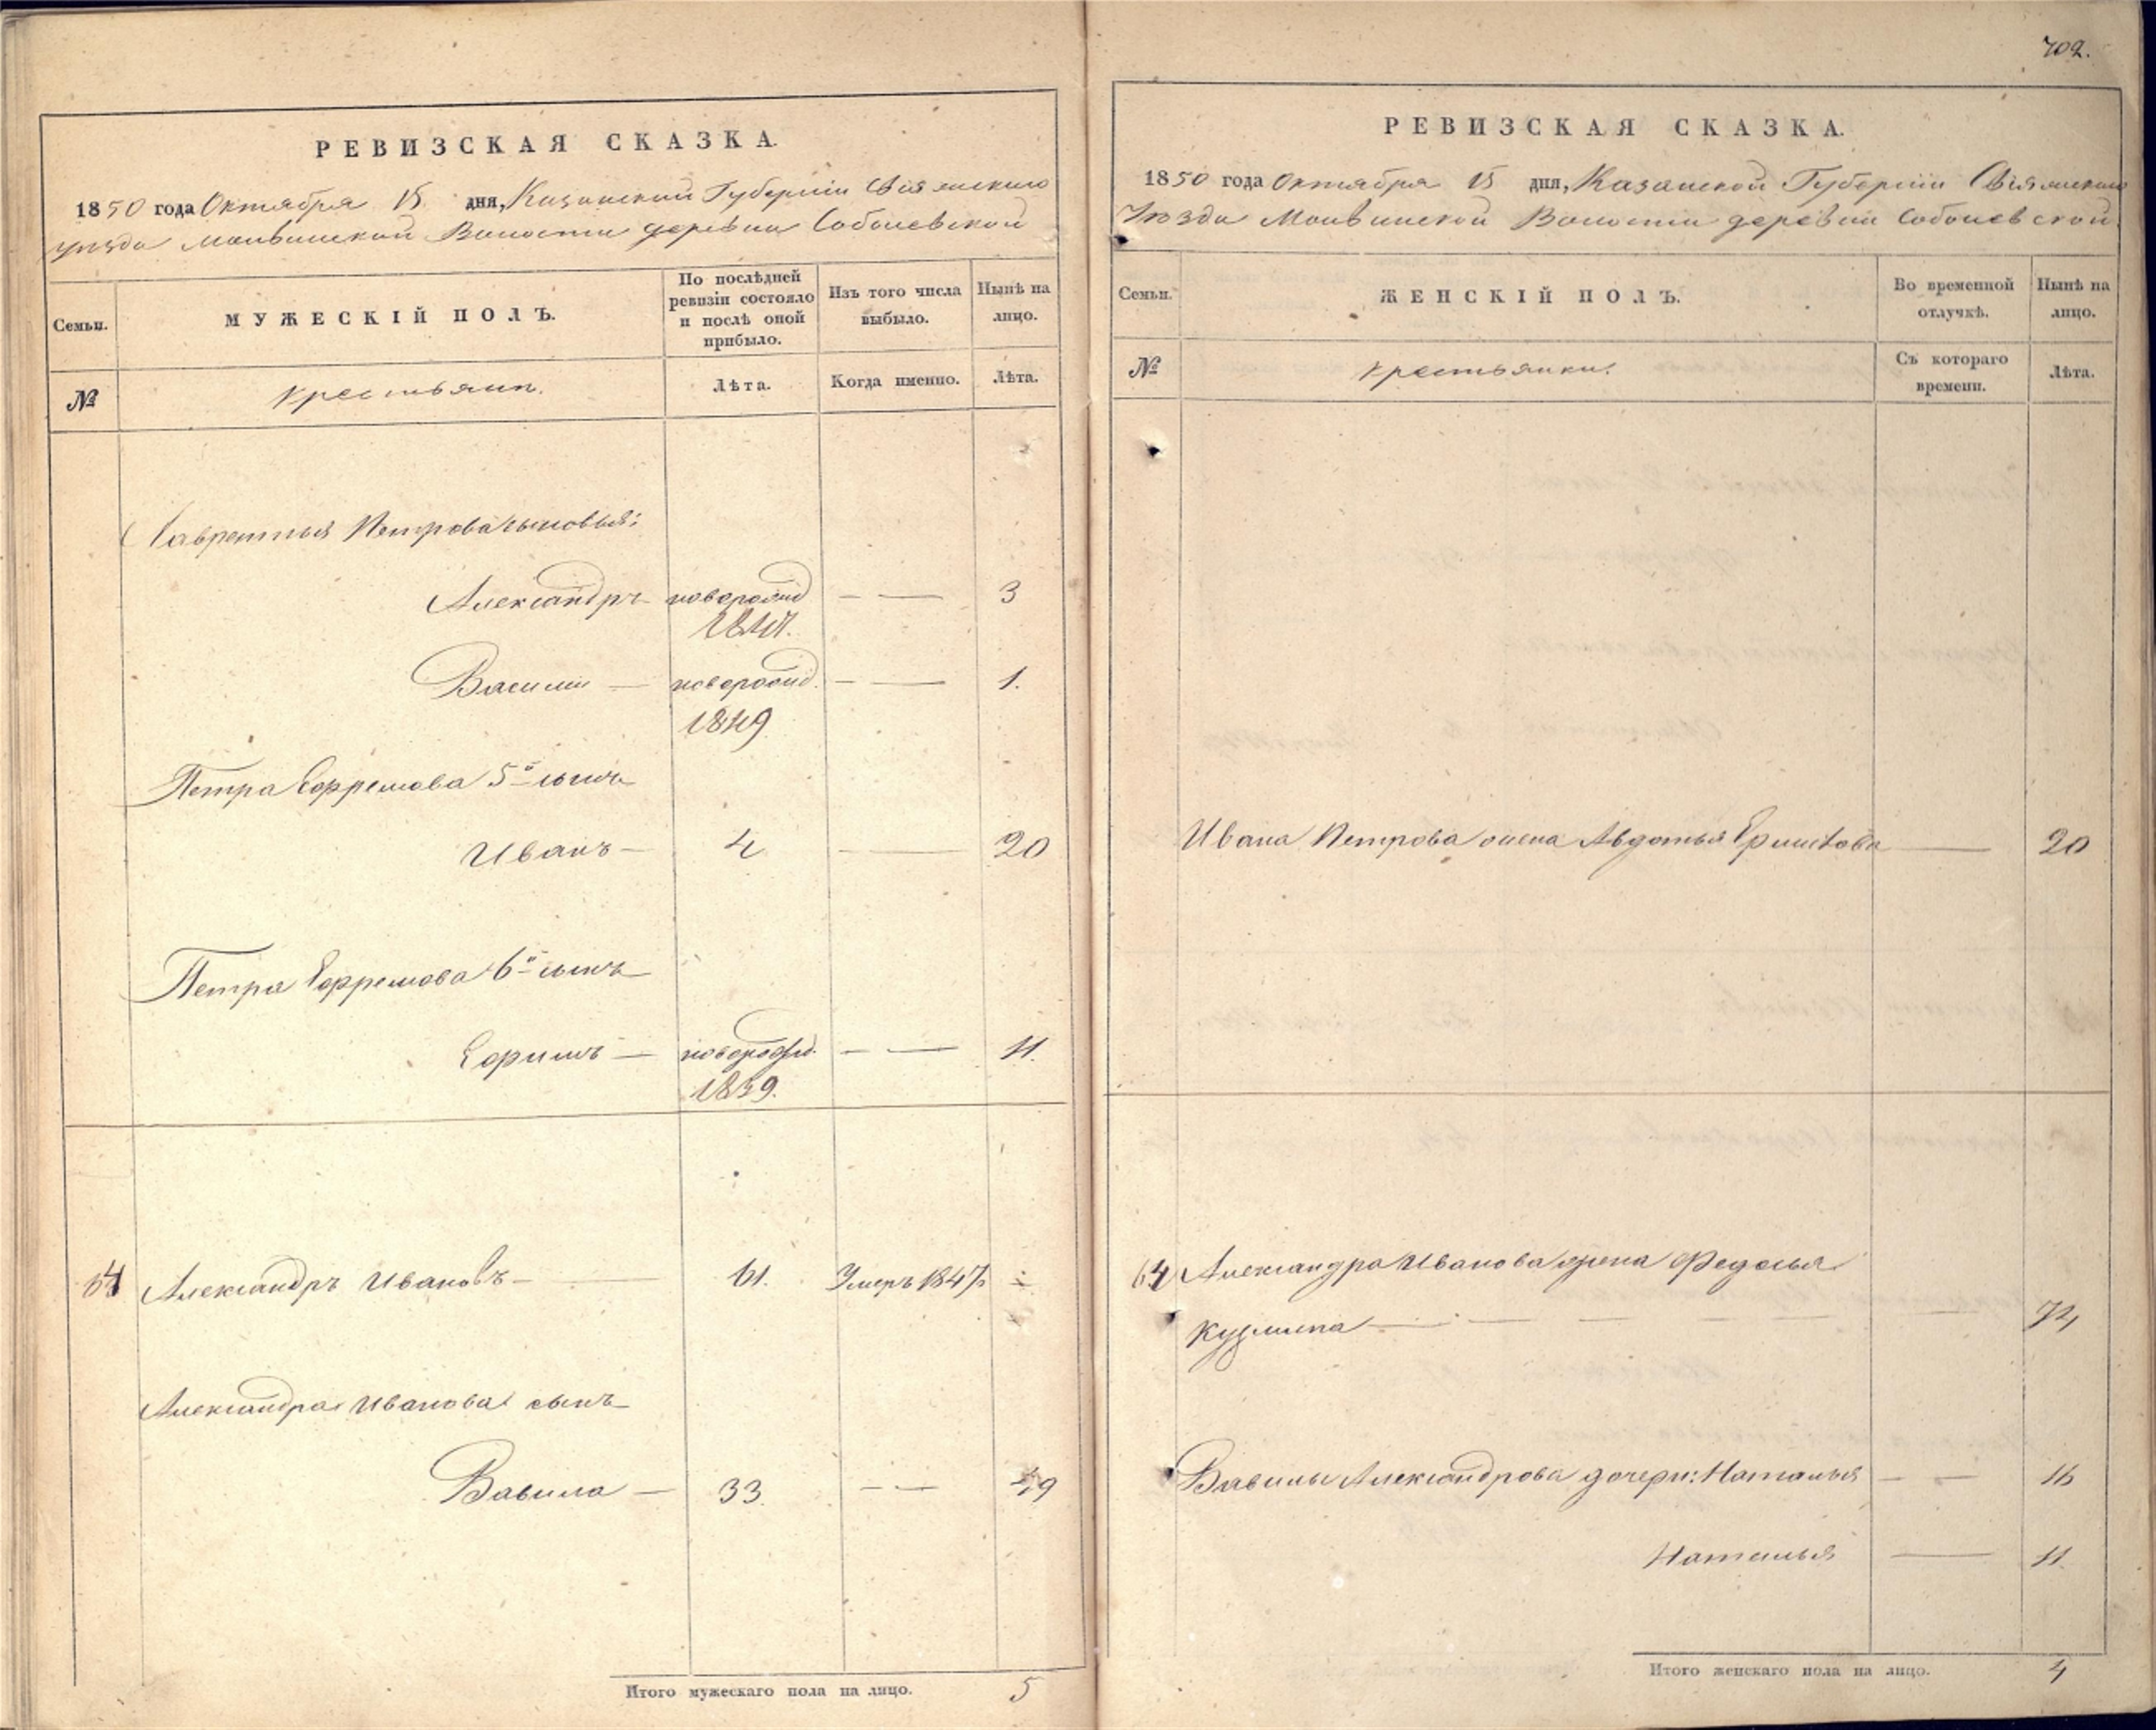 РЕВИЗСКАЯ СКАЗКА.
1850 года Октября 15 дня, Казанской Губернии Свіяжскаго
уѣзда Волости деревни Соболевской
Семьи.
МУЖЕСКІЙ ПОЛЪ.
По послѣдней
ревизіи состояло
и послѣ оной
прибыло.
Изъ того числа
выбыло.
Нынѣ на
лицо.
№
крестьяне.
Лѣта.
Когда именно.
Лѣта.
Лаврентья Петрова сыновья:
Александръ — новорожд — — 3
1847.
Василий — новорожд. — — 1.
1849
Петра Ефремова 5й сынъ
Иванъ — 4 — 20
Петра Ефремова 6й сынъ
Ефимъ — новорожд. — — 11.
1839.
64 Александръ Ивановъ — 61. Умеръ 1847 ÷
Александра Иванова сынъ
Вавила — 33. — — 49
Итого мужескаго пола на лицо. 5
702.
РЕВИЗСКАЯ СКАЗКА.
1850 года Октября 15 дня, Казанской Губернии Свіяжскаго
Уѣзда Волости деревни Соболевской
Семьи.
ЖЕНСКІЙ ПОЛЪ.
Во временной
отлучкѣ.
Нынѣ на
лицо.
№
крестьянки.
Съ котораго
времени.
Лѣта.
Ивана Петрова жена Авдотья — 20
64 Александра Иванова жена Федосья
Кузмина — — — — — — 74
Вавилы Александрова дочери: Наталья — — 16
Наталья — 11
Итого женскаго пола на лицо. 4